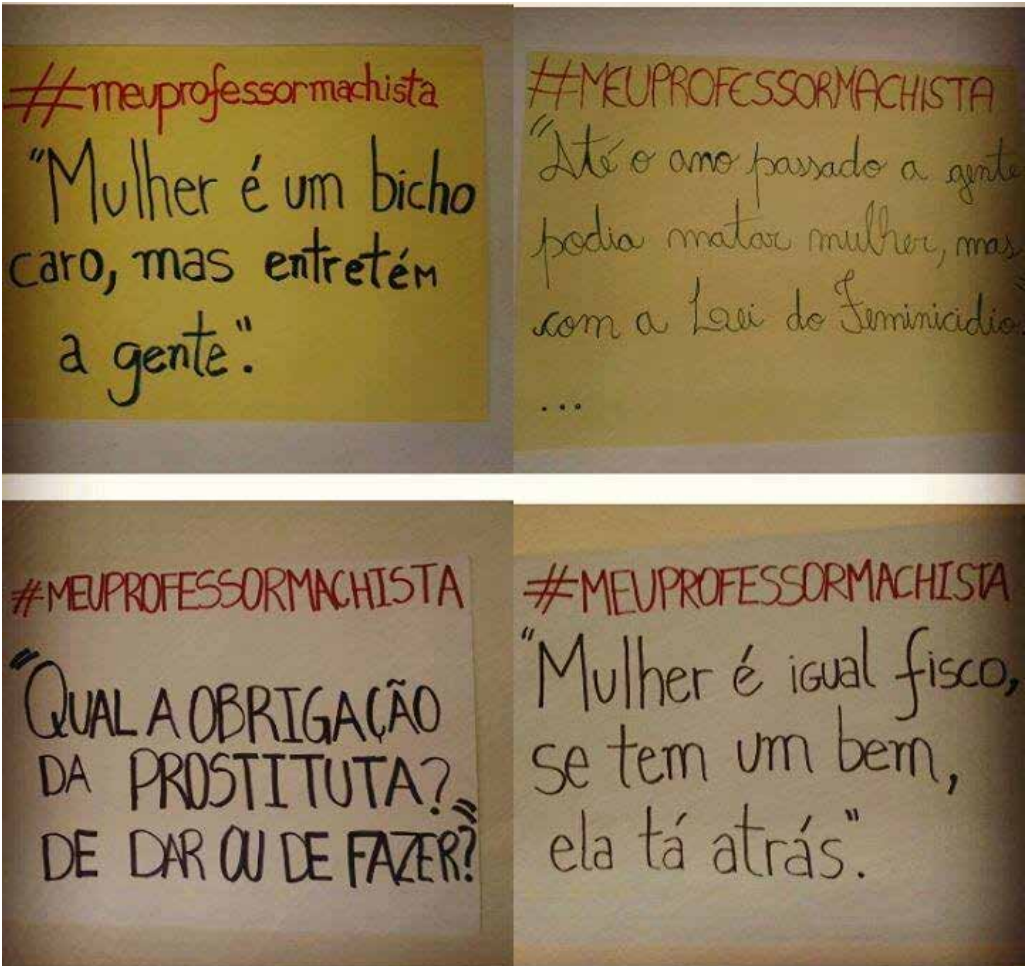 #meuprofessormachista
"Mulher é um bicho
caro, mas entretém
a gente".
#MEUPROFESSORMACHISTA
"Até o ano passado a gente
podia matar mulher, mas
com a Lei do Feminicídio"
...
#MEUPROFESSORMACHISTA
"QUAL A OBRIGAÇÃO
DA PROSTITUTA?
DE DAR OU DE FAZER?"
#MEUPROFESSORMACHISTA
"Mulher é igual fisco,
se tem um bem,
ela tá atrás".